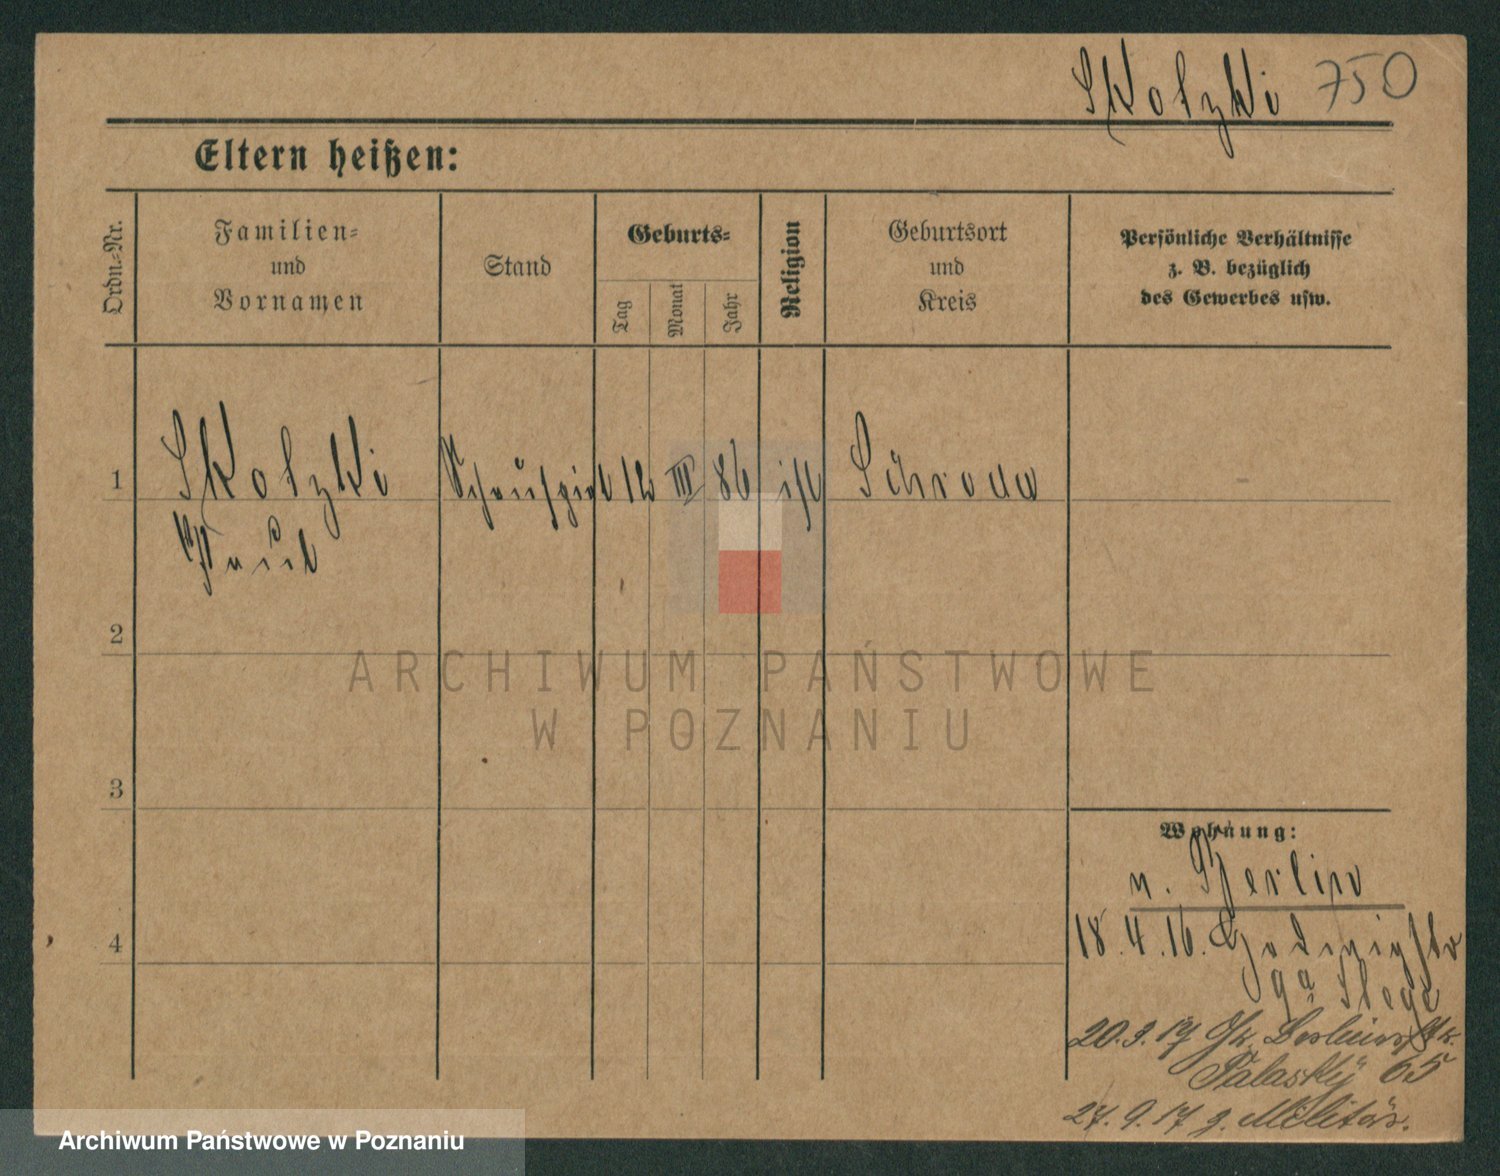 Skolzki 750
Eltern heißen:
Ordn.-Nr.
Familien-
und
Vornamen
Stand
Geburts-
Tag
Monat
Jahr
Religion
Geburtsort
und
Kreis
Persönliche Verhältnisse
z. B. bezüglich
des Gewerbes usw.
1 Skolzki Schauspiel 12 III 86 isr Schroda
Paul
2
ARCHIWUM PAŃSTWOWE
W POZNANIU
3
Wohnung:
n. Berlin
4
18.4.16.
9a
20.3.17 Gr. Berlinerstr.
Palasky 65
27.9.17 z. Militär.
Archiwum Państwowe w Poznaniu